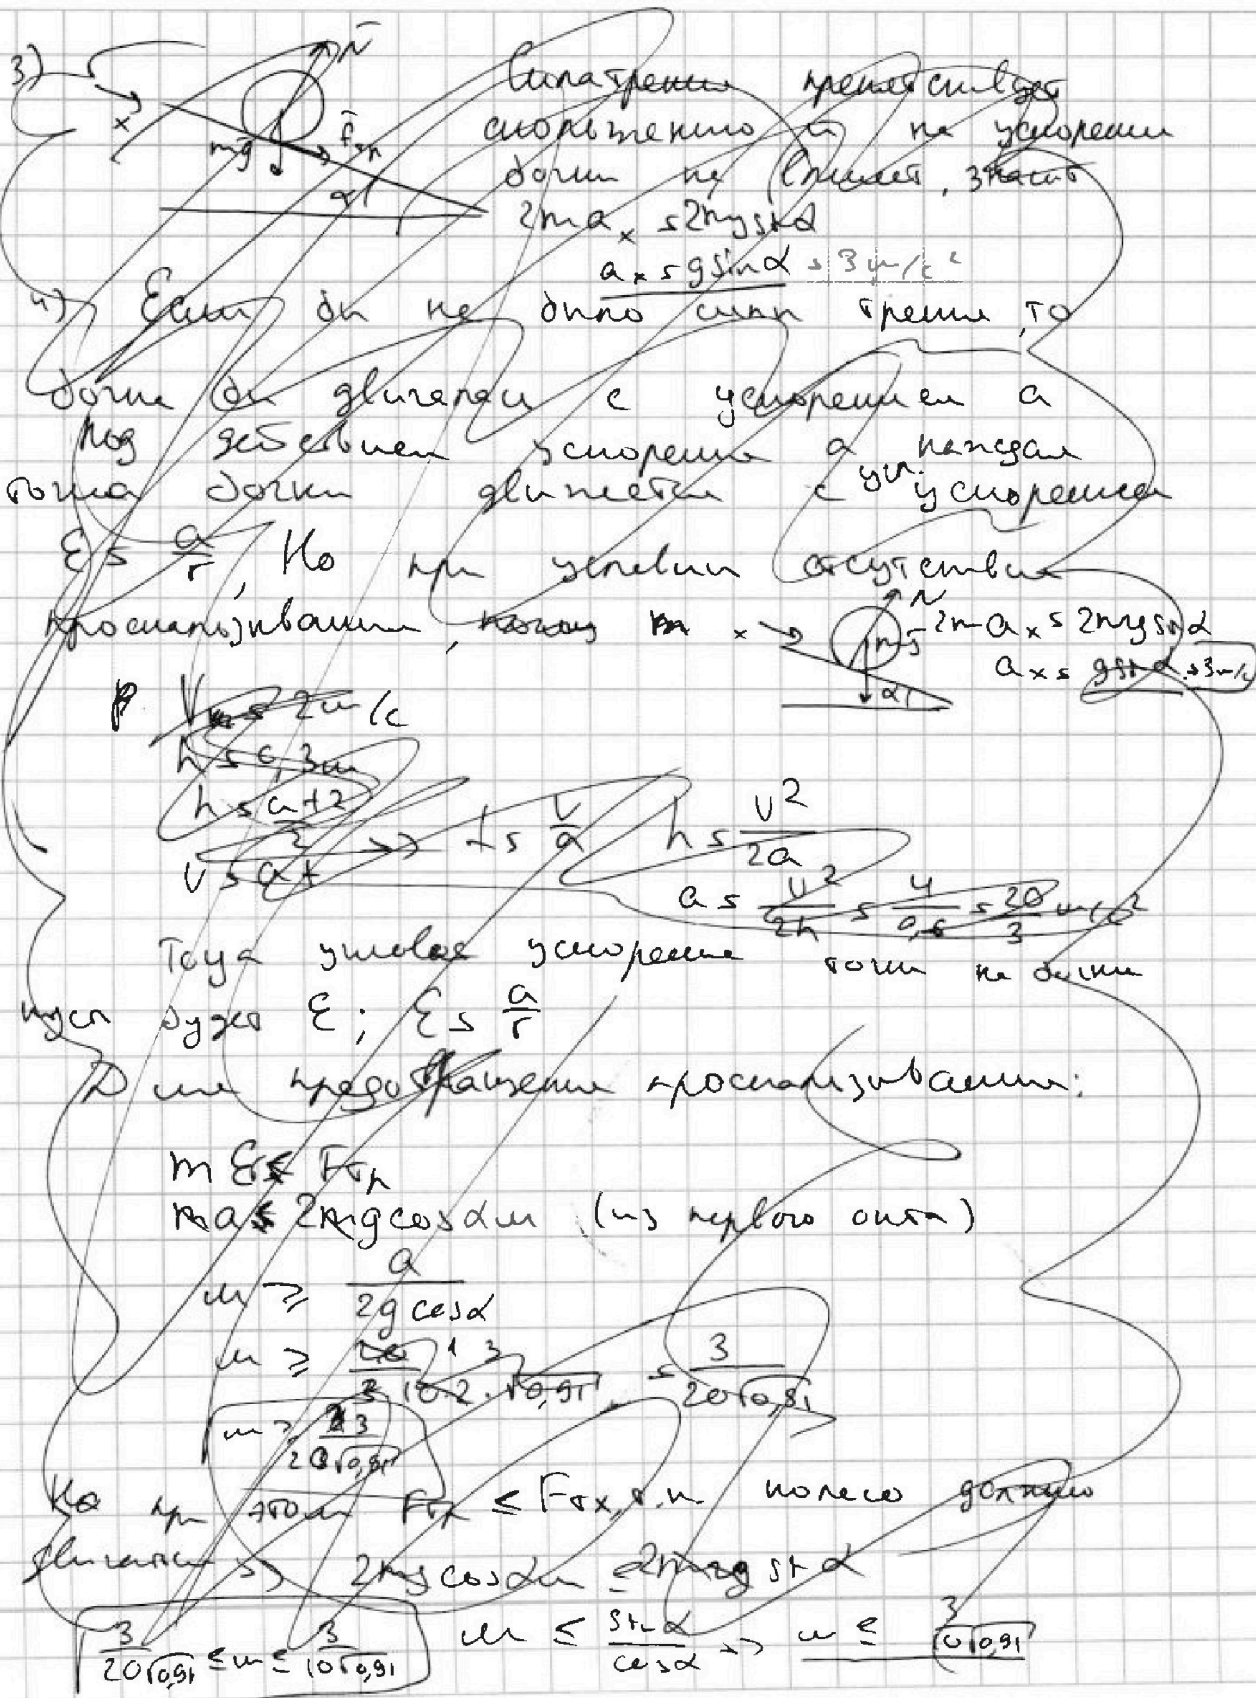 3)
N
x
mg
Fтр
α
Сила трения препятствует
скольжению и на ускорение
бочки не влияет, значит
2ma_x = 2mg sin α
a_x = g sin α = 3 м/с²
4) Если бы не было силы трения, то
бочка бы двигалась с ускорением a
под действием ускорения a каждая
точка бочки движется с уг. ускорением
ε = a/r, Но при условии отсутствия
проскальзывания,
x
N
α
2ma_x = 2mg sin α
a_x = g sin α = 3 м/с
V = 2 м/с
h = 0,3 м
h = at²/2
V = at => t = V/a h = V²/2a
a = V²/2h = 4/0,6 = 20/3 м/с²
Тогда угловое ускорение точки на бочки
пусть будет ε; ε = a/r
Для предотвращения проскальзывания:
mεr ≤ Fтр
ma ≤ 2mg cos α μ (из первого
μ ≥ a/(2g cos α)
= 3/(20√0,91)
μ ≥ 3/(20√0,91)
Но при этом Fтр ≤ Fтх, т.к. колесо должно
двигаться => 2mg cos α μ ≤ 2mg sin α
3/(20√0,91) ≤ μ ≤ 3/(10√0,91) μ ≤ sin α/cos α => μ ≤ 3/(10√0,91)